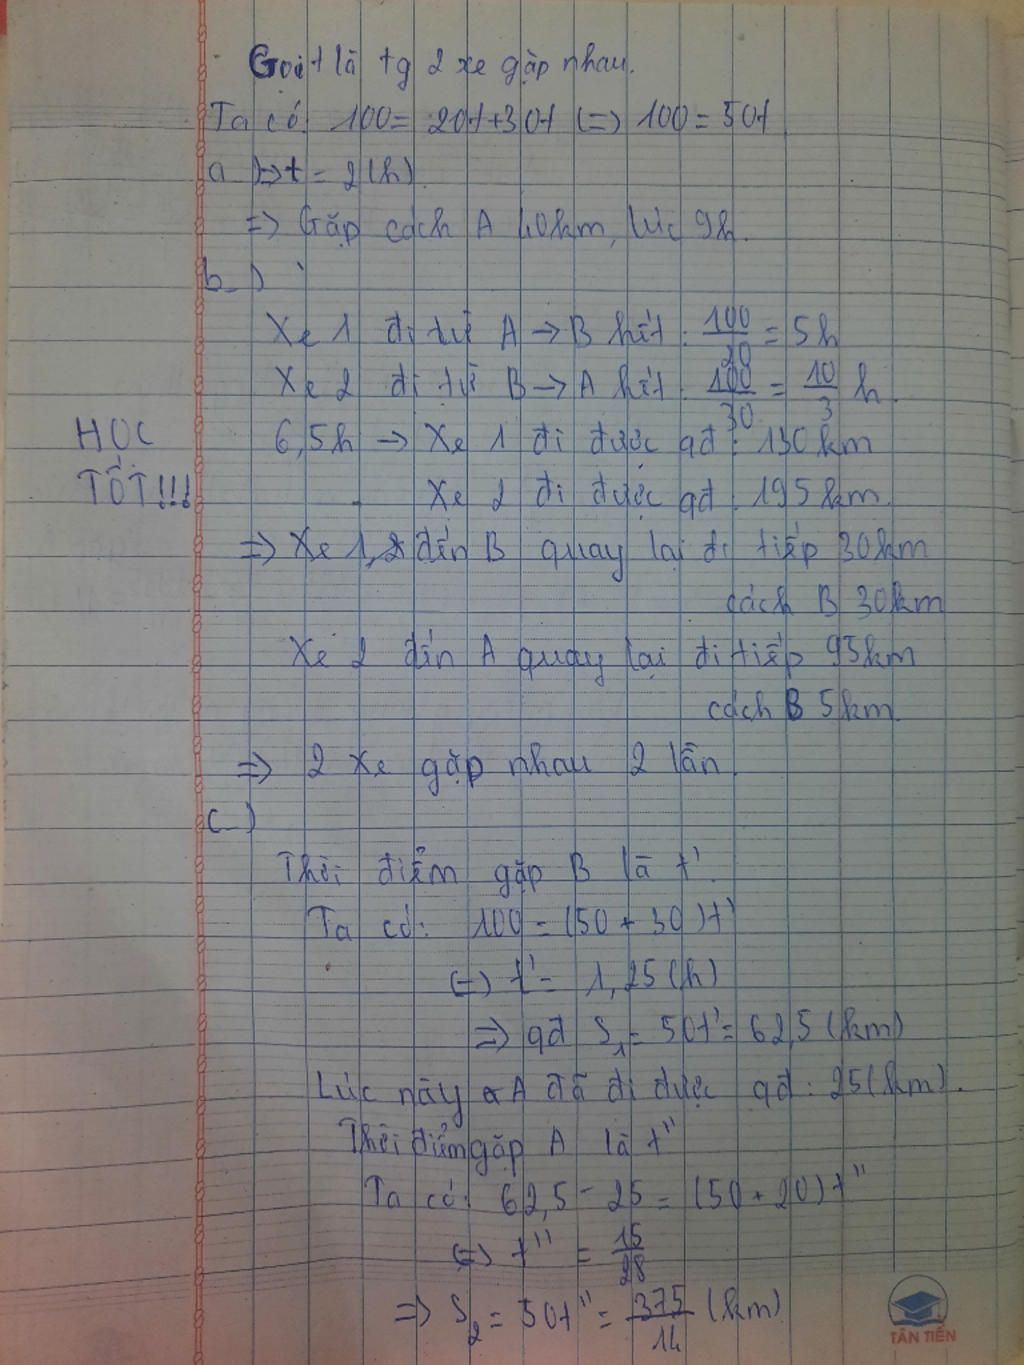 Gọi t là tg 2 xe gặp nhau.
Ta có: 100 = 20t+30t (=) 100 = 50t
a ) => t = 2(h)
=> Gặp cách A 40km, lúc 9h.
b )
Xe 1 đi từ A -> B hết : 100/20 = 5h
Xe 2 đi từ B -> A hết : 100/30 = 10/3 h.
6,5h -> Xe 1 đi được qđ : 130km
Xe 2 đi được qđ : 195km.
=> Xe 1, đến B quay lại đi tiếp 30km
cách B 30km
Xe 2 đến A quay lại đi tiếp 95km
cách B 5km.
=> 2 xe gặp nhau 2 lần.
c )
Thời điểm gặp B là t'.
Ta có: 100 = (50 + 30)t'
(=) t' = 1,25(h)
=> qđ S1 = 50t' = 62,5 (km)
Lúc này A đã đi được qđ : 25(km).
Thời điểm gặp A là t''
Ta có: 62,5 - 25 = (50 + 20)t''
(=) t'' = 15/28
=> S2 = 50t'' = 375/14 (km)
HỌC
TỐT!!!
TÂN TIẾN